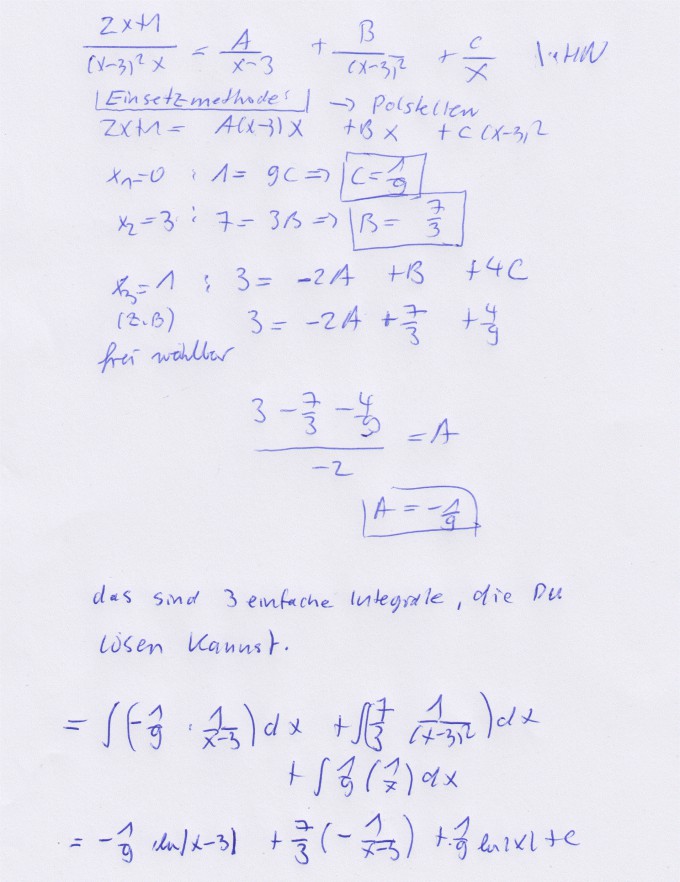 (2x+1)/((x-3)² x) = A/(x-3) + B/(x-3)² + C/x |·HN
Einsetzmethode: → Polstellen
2x+1 = A(x-3)x +Bx +C(x-3)²
x₁=0 : 1= 9C => C=1/9
x₂=3 : 7= 3B => B= 7/3
x₃=1 : 3= -2A +B +4C
(z.B) 3= -2A +7/3 +4/9
frei wählbar
(3 - 7/3 - 4/9)/(-2) = A
A = -1/9
das sind 3 einfache Integrale, die Du
lösen kannst.
= ∫(-1/9 · 1/(x-3))dx +∫(7/3 1/(x-3)²)dx
+ ∫ 1/9 (1/x) dx
= -1/9 ·ln|x-3| + 7/3 (-1/(x-3)) + 1/9 ln|x| +c